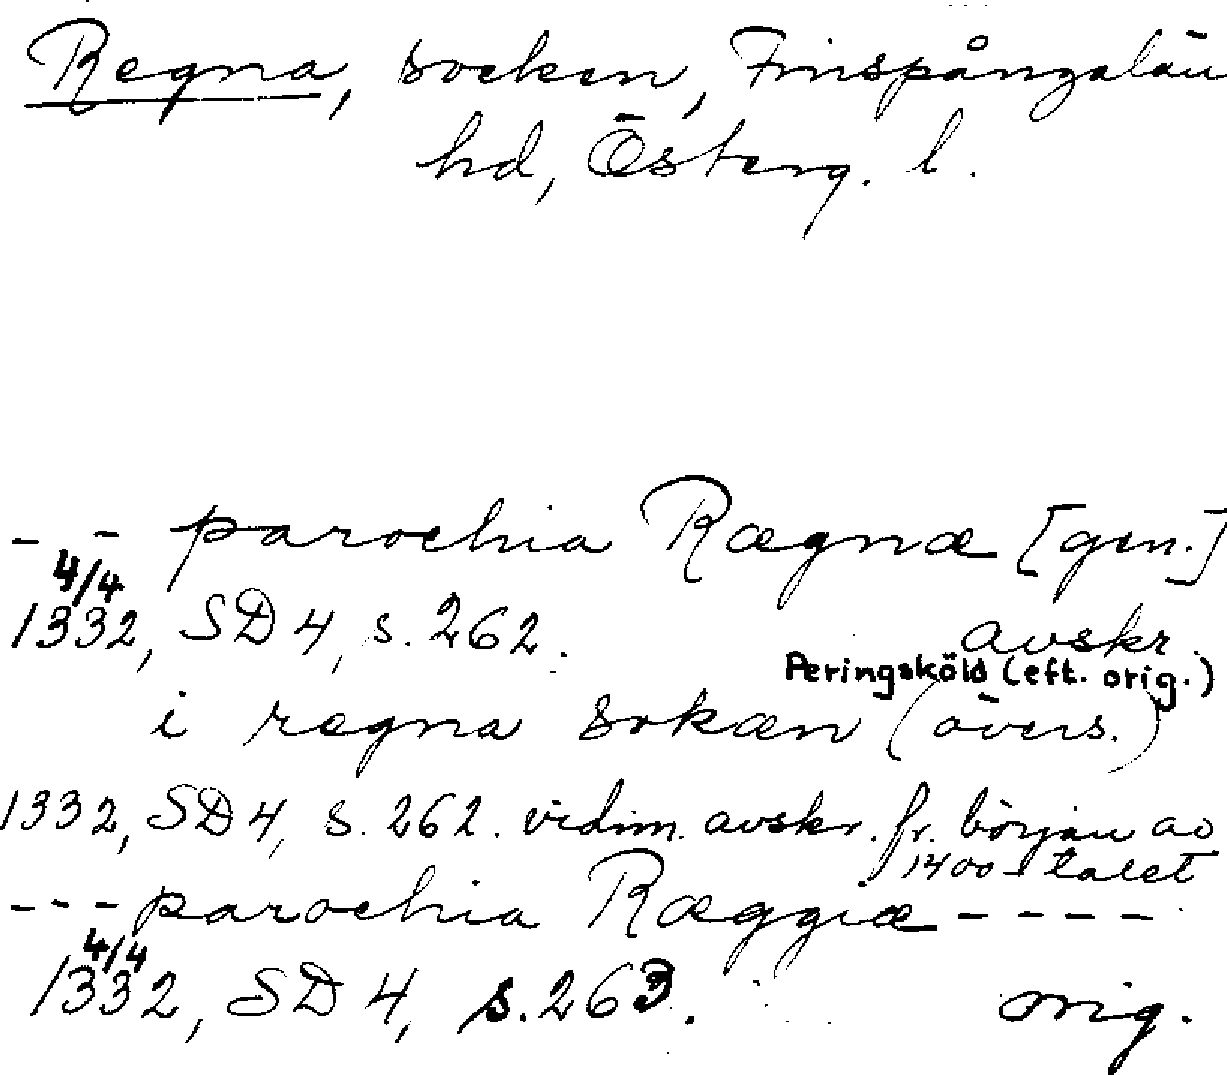 Regna, socken, Finspångalän
hd, Österg. l.
- - parochia Rægnæ [gen.]
4/4
1332, SD 4, s. 262. avskr.
Peringsköld (eft. orig.)
i rægna sokæn (övers.)
1332, SD 4, s. 262. vidim. avskr. fr. början av
1400-talet
--- parochia Ræggiæ ----
4/4
1332, SD 4, s. 263. orig.